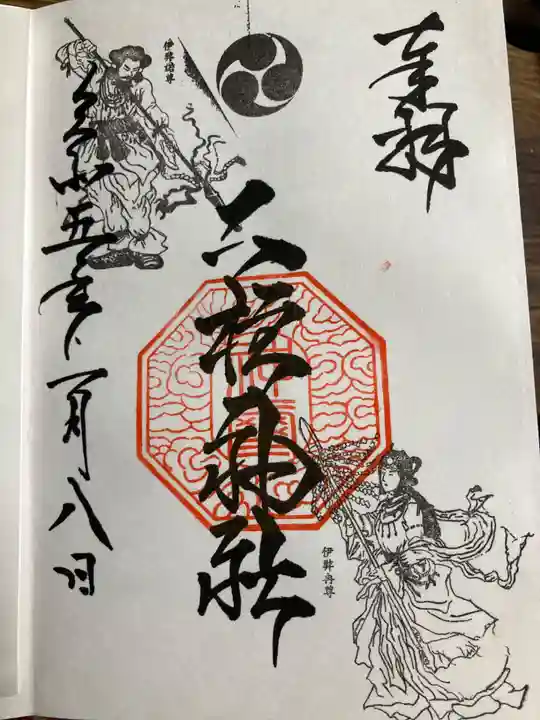 奉拝
六柱神社
令和五年一月八日
伊弉諾尊
伊弉冉尊